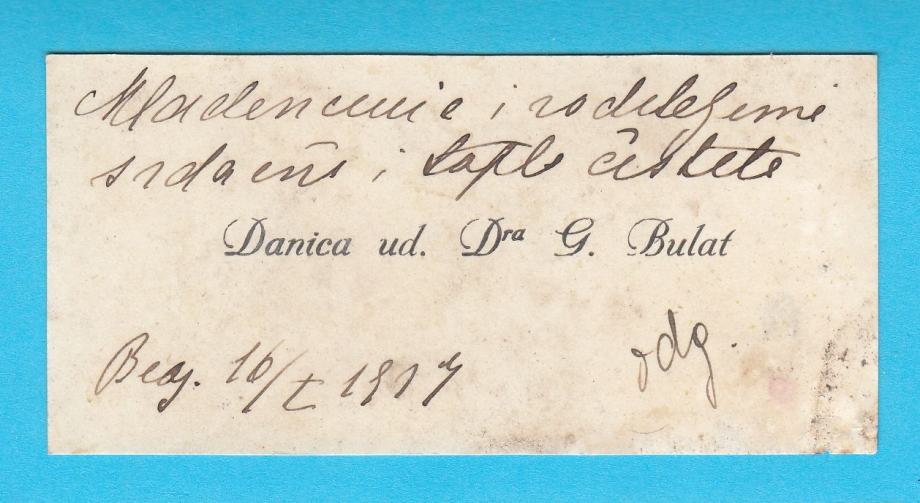 Mladencima i roditeljima
srdačne i tople čestite
Danica ud. Dra G. Bulat
Beog. 16/I 1917
odg.